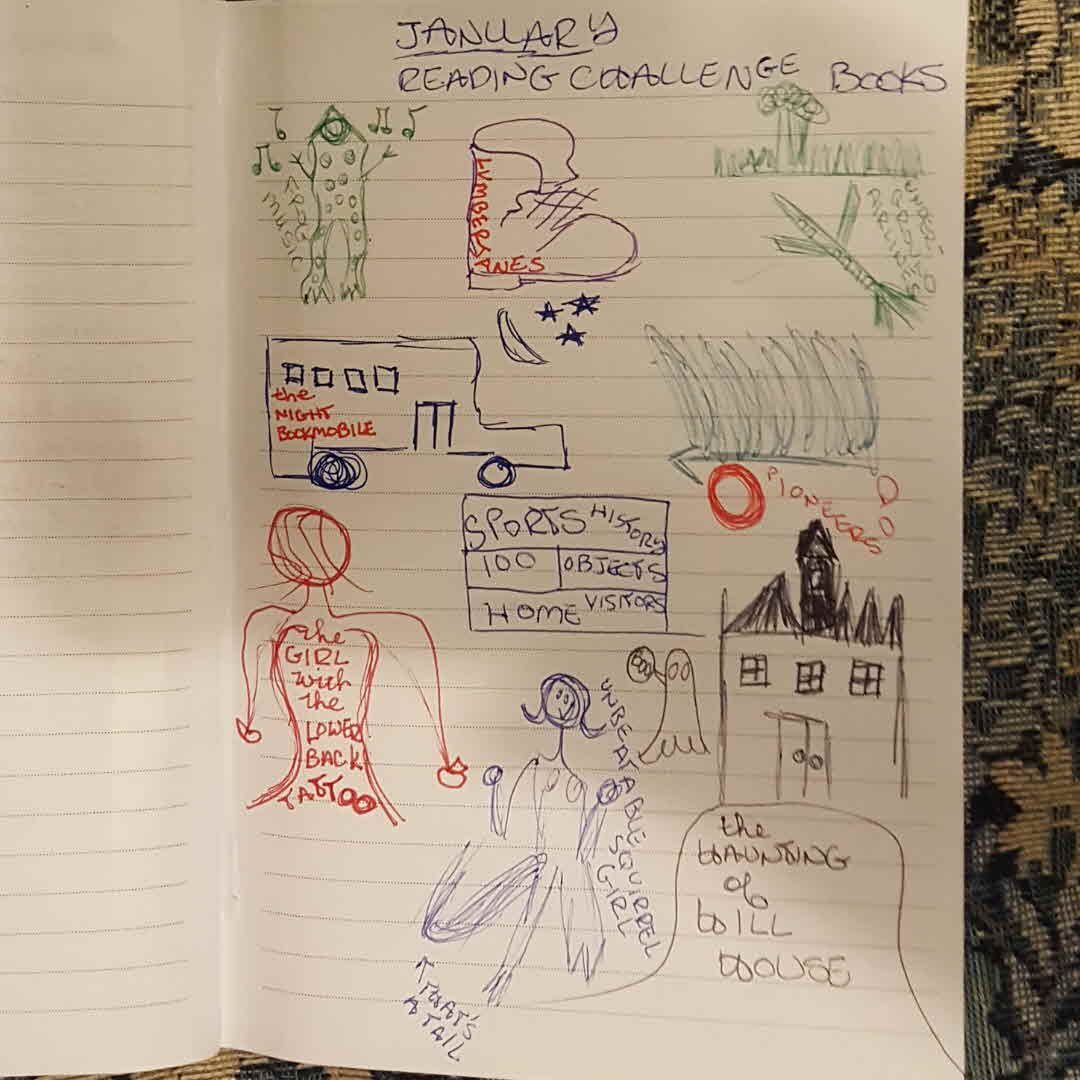 JANUARY
READING CHALLENGE BOOKS
FROG
MUSIC
LUMBERJANES
the
NIGHT
BOOKMOBILE
PIONEERS
SPORTS HISTORY
100 OBJECTS
HOME VISITORS
the
GIRL
with
the
LOWER
BACK
TATTOO
UNBEATABLE SQUIRREL
GIRL
THAT'S
A TAIL
the
HAUNTING
of
HILL
HOUSE